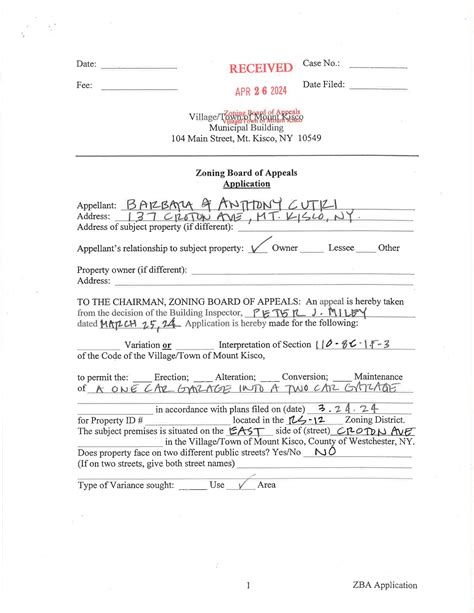 Date: Case No.:
RECEIVED
Fee: Date Filed:
APR 26 2024
Zoning Board of Appeals
Village/Town of Mount Kisco
Village/Town of Mount Kisco
Municipal Building
104 Main Street, Mt. Kisco, NY 10549
Zoning Board of Appeals
Application
Appellant: BARBARA & ANTHONY CUTRI
Address: 137 CROTON AVE, MT. KISCO, NY.
Address of subject property (if different):
Appellant's relationship to subject property: ✓ Owner Lessee Other
Property owner (if different):
Address:
TO THE CHAIRMAN, ZONING BOARD OF APPEALS: An appeal is hereby taken
from the decision of the Building Inspector, PETER J. MILEY
dated MARCH 25, 24 Application is hereby made for the following:
Variation or Interpretation of Section
of the Code of the Village/Town of Mount Kisco,
to permit the: Erection; Alteration; Conversion; Maintenance
of A ONE CAR GARAGE INTO A TWO CAR GARAGE
in accordance with plans filed on (date) 3.24.24
for Property ID # located in the RS-12 Zoning District.
The subject premises is situated on the EAST side of (street) CROTON AVE
in the Village/Town of Mount Kisco, County of Westchester, NY.
Does property face on two different public streets? Yes/No NO
(If on two streets, give both street names)
Type of Variance sought: Use ✓ Area
1 ZBA Application